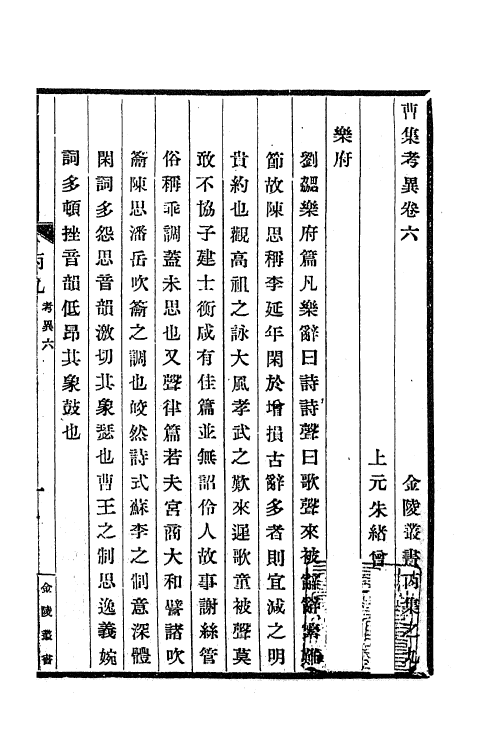 曹集考異卷六
金陵叢書丙集之九
上元朱緒曾
樂府
劉勰樂府篇凡樂辭曰詩詩聲曰歌聲來被辭辭繁難
節故陳思稱李延年閑於增損古辭多者則宜減之明
貴約也觀高祖之詠大風孝武之歎來遲歌童被聲莫
敢不協子建士衡咸有佳篇並無詔伶人故事謝絲管
俗稱乖調蓋未思也又聲律篇若夫宮商大和譬諸吹
籥陳思潘岳吹籥之調也皎然詩式蘇李之制意深體
閑詞多怨思音韻激切其象瑟也曹王之制思逸義婉
詞多頓挫音韻低昂其象鼓也
丙九
考異六
一
金陵叢書